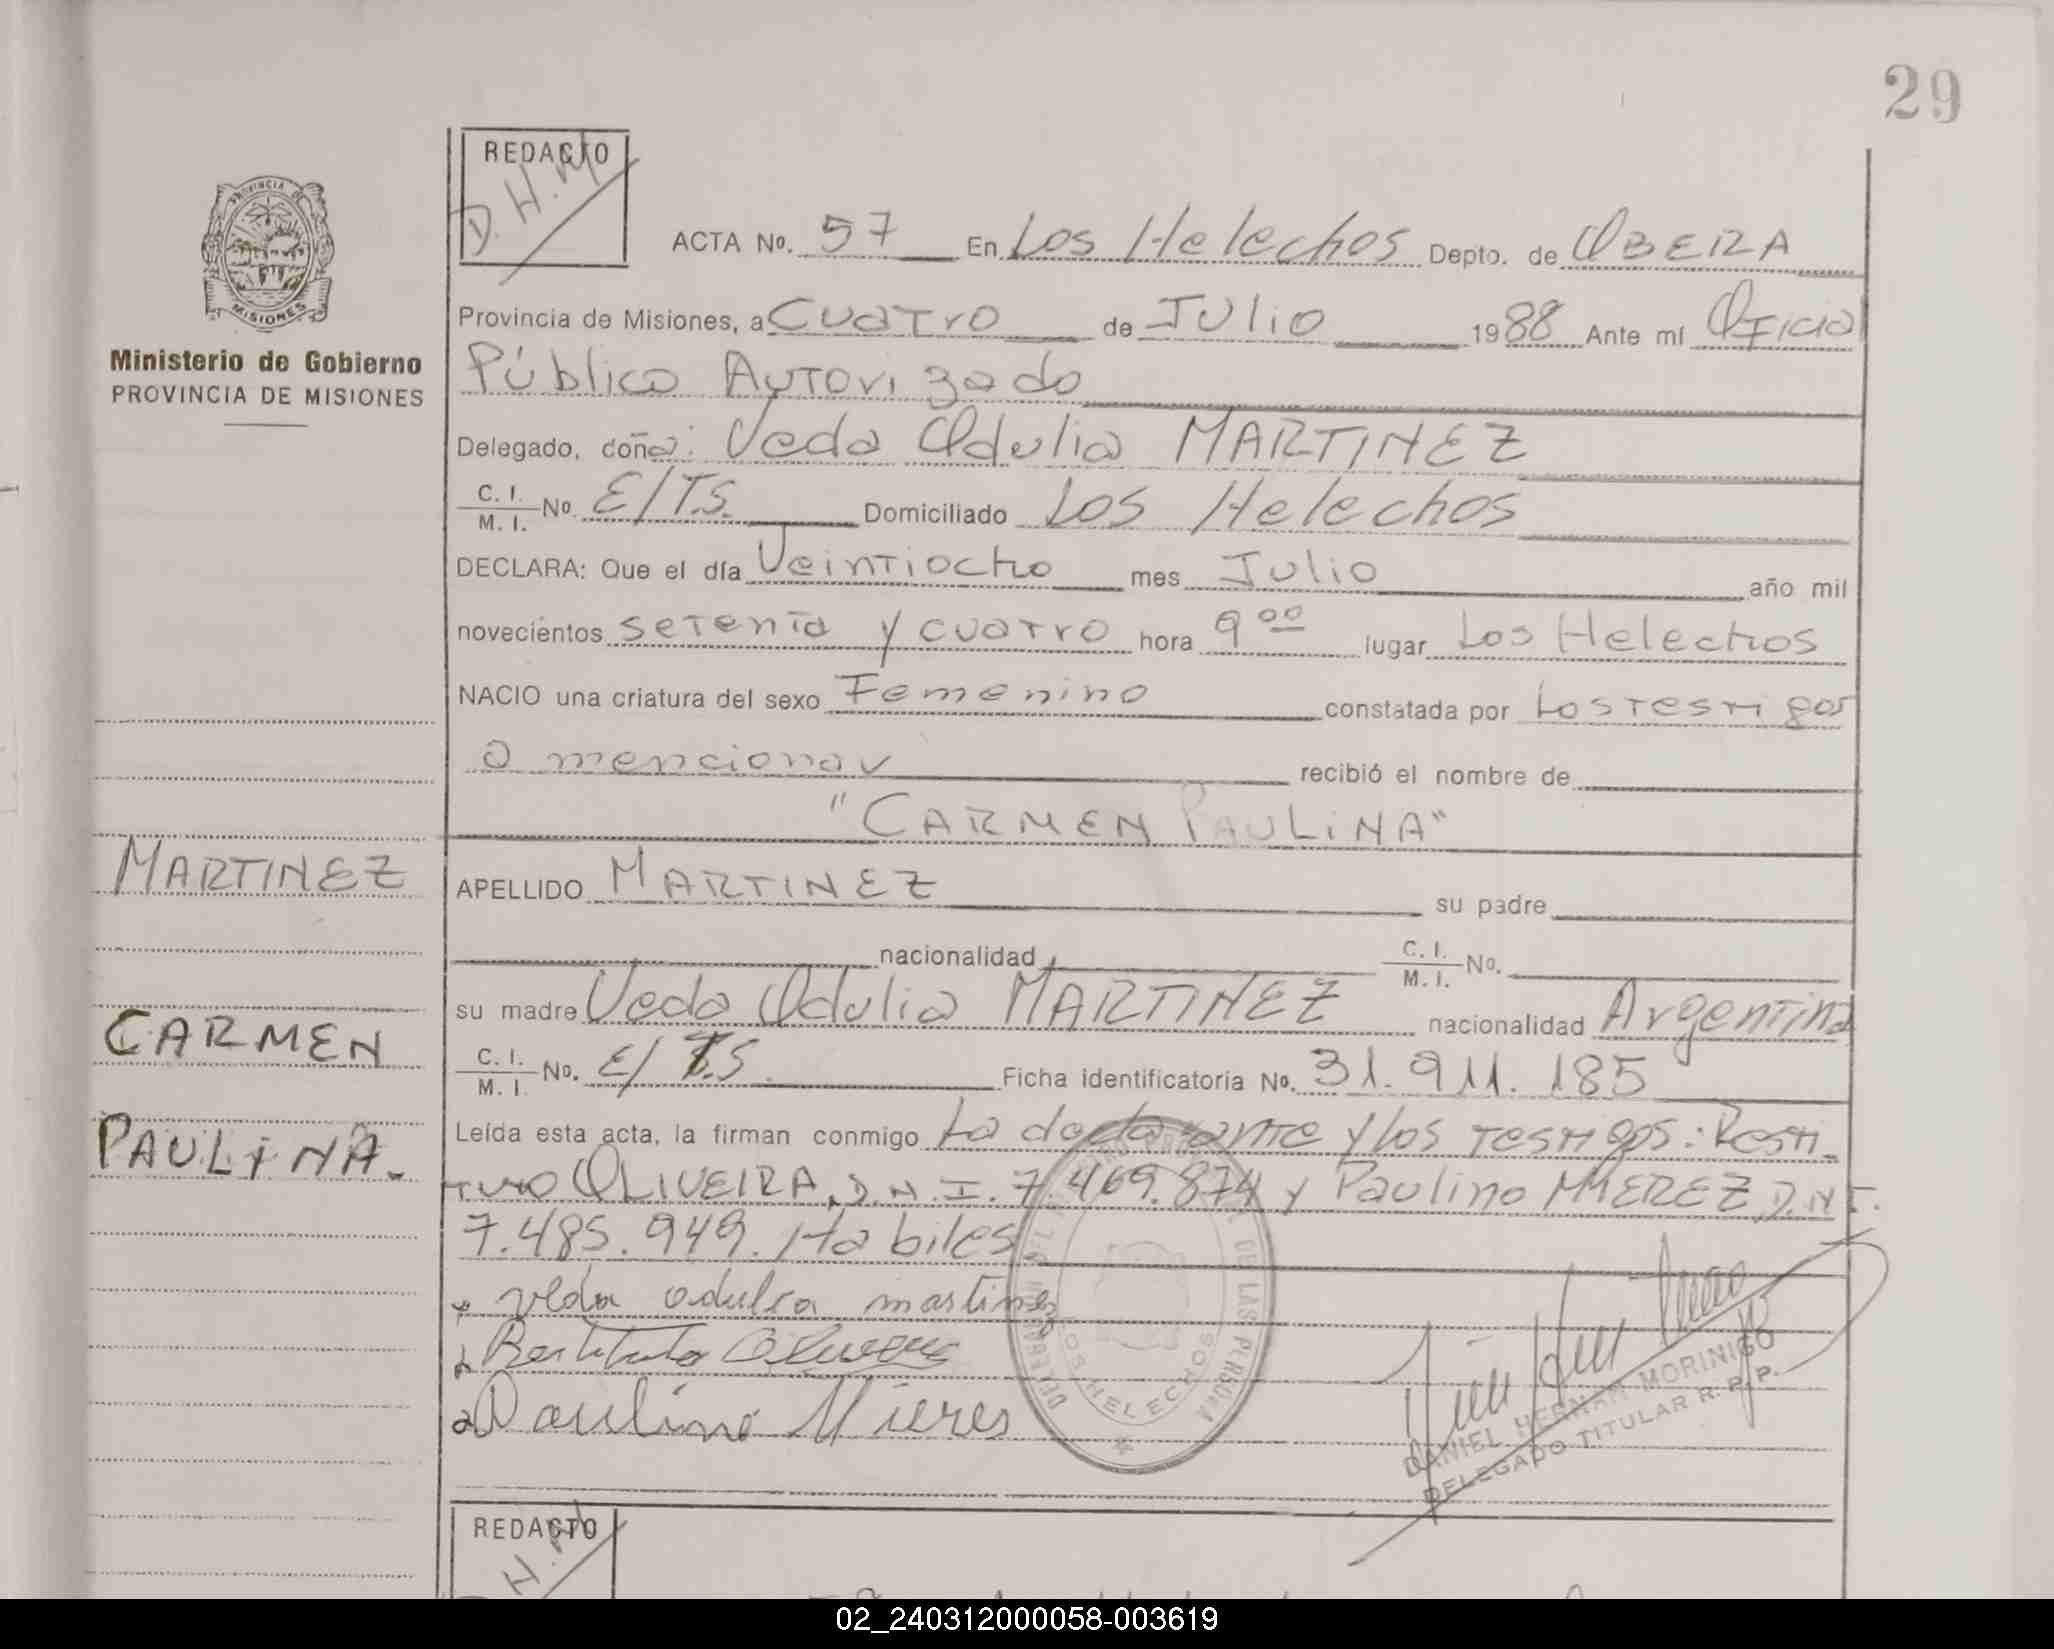 29
REDACTO
D. H. M.
ACTA No. 57 En Los Helechos Depto. de OBERA
PROVINCIA DE
MISIONES
Ministerio de Gobierno
PROVINCIA DE MISIONES
Provincia de Misiones, a Cuatro de Julio 1988 Ante mí Oficial
Público Autorizado
Delegado, doña: Veda Odulia MARTINEZ
C. I. / M. I. No. E/T.S. Domiciliado Los Helechos
DECLARA: Que el día Veintiocho mes Julio año mil
novecientos setenta y cuatro hora 9 00 lugar Los Helechos
NACIO una criatura del sexo Femenino constatada por Los Testigos
a mencionar recibió el nombre de
"CARMEN PAULINA"
MARTINEZ
APELLIDO MARTINEZ su padre
nacionalidad C. I. / M. I. No.
CARMEN
su madre Veda Odulia MARTINEZ nacionalidad Argentina
C. I. / M. I. No. E/ T.S. Ficha identificatoria No. 31.911.185
PAULINA.
Leída esta acta, la firman conmigo La declarante y los Testigos: Resti-
tuto OLIVEIRA, D.N.I. 7.469.874 y Paulino MIEREZ D.N.I.
7.485.949. Habiles
velda odulia martinez
Restituto Olivera
Paulino Mieres
DE LAS PERSONAS
LOS HELECHOS
DANIEL HERNAN MORINIGO
DELEGADO TITULAR R. P. P.
REDACTO
H. M.
02_240312000058-003619